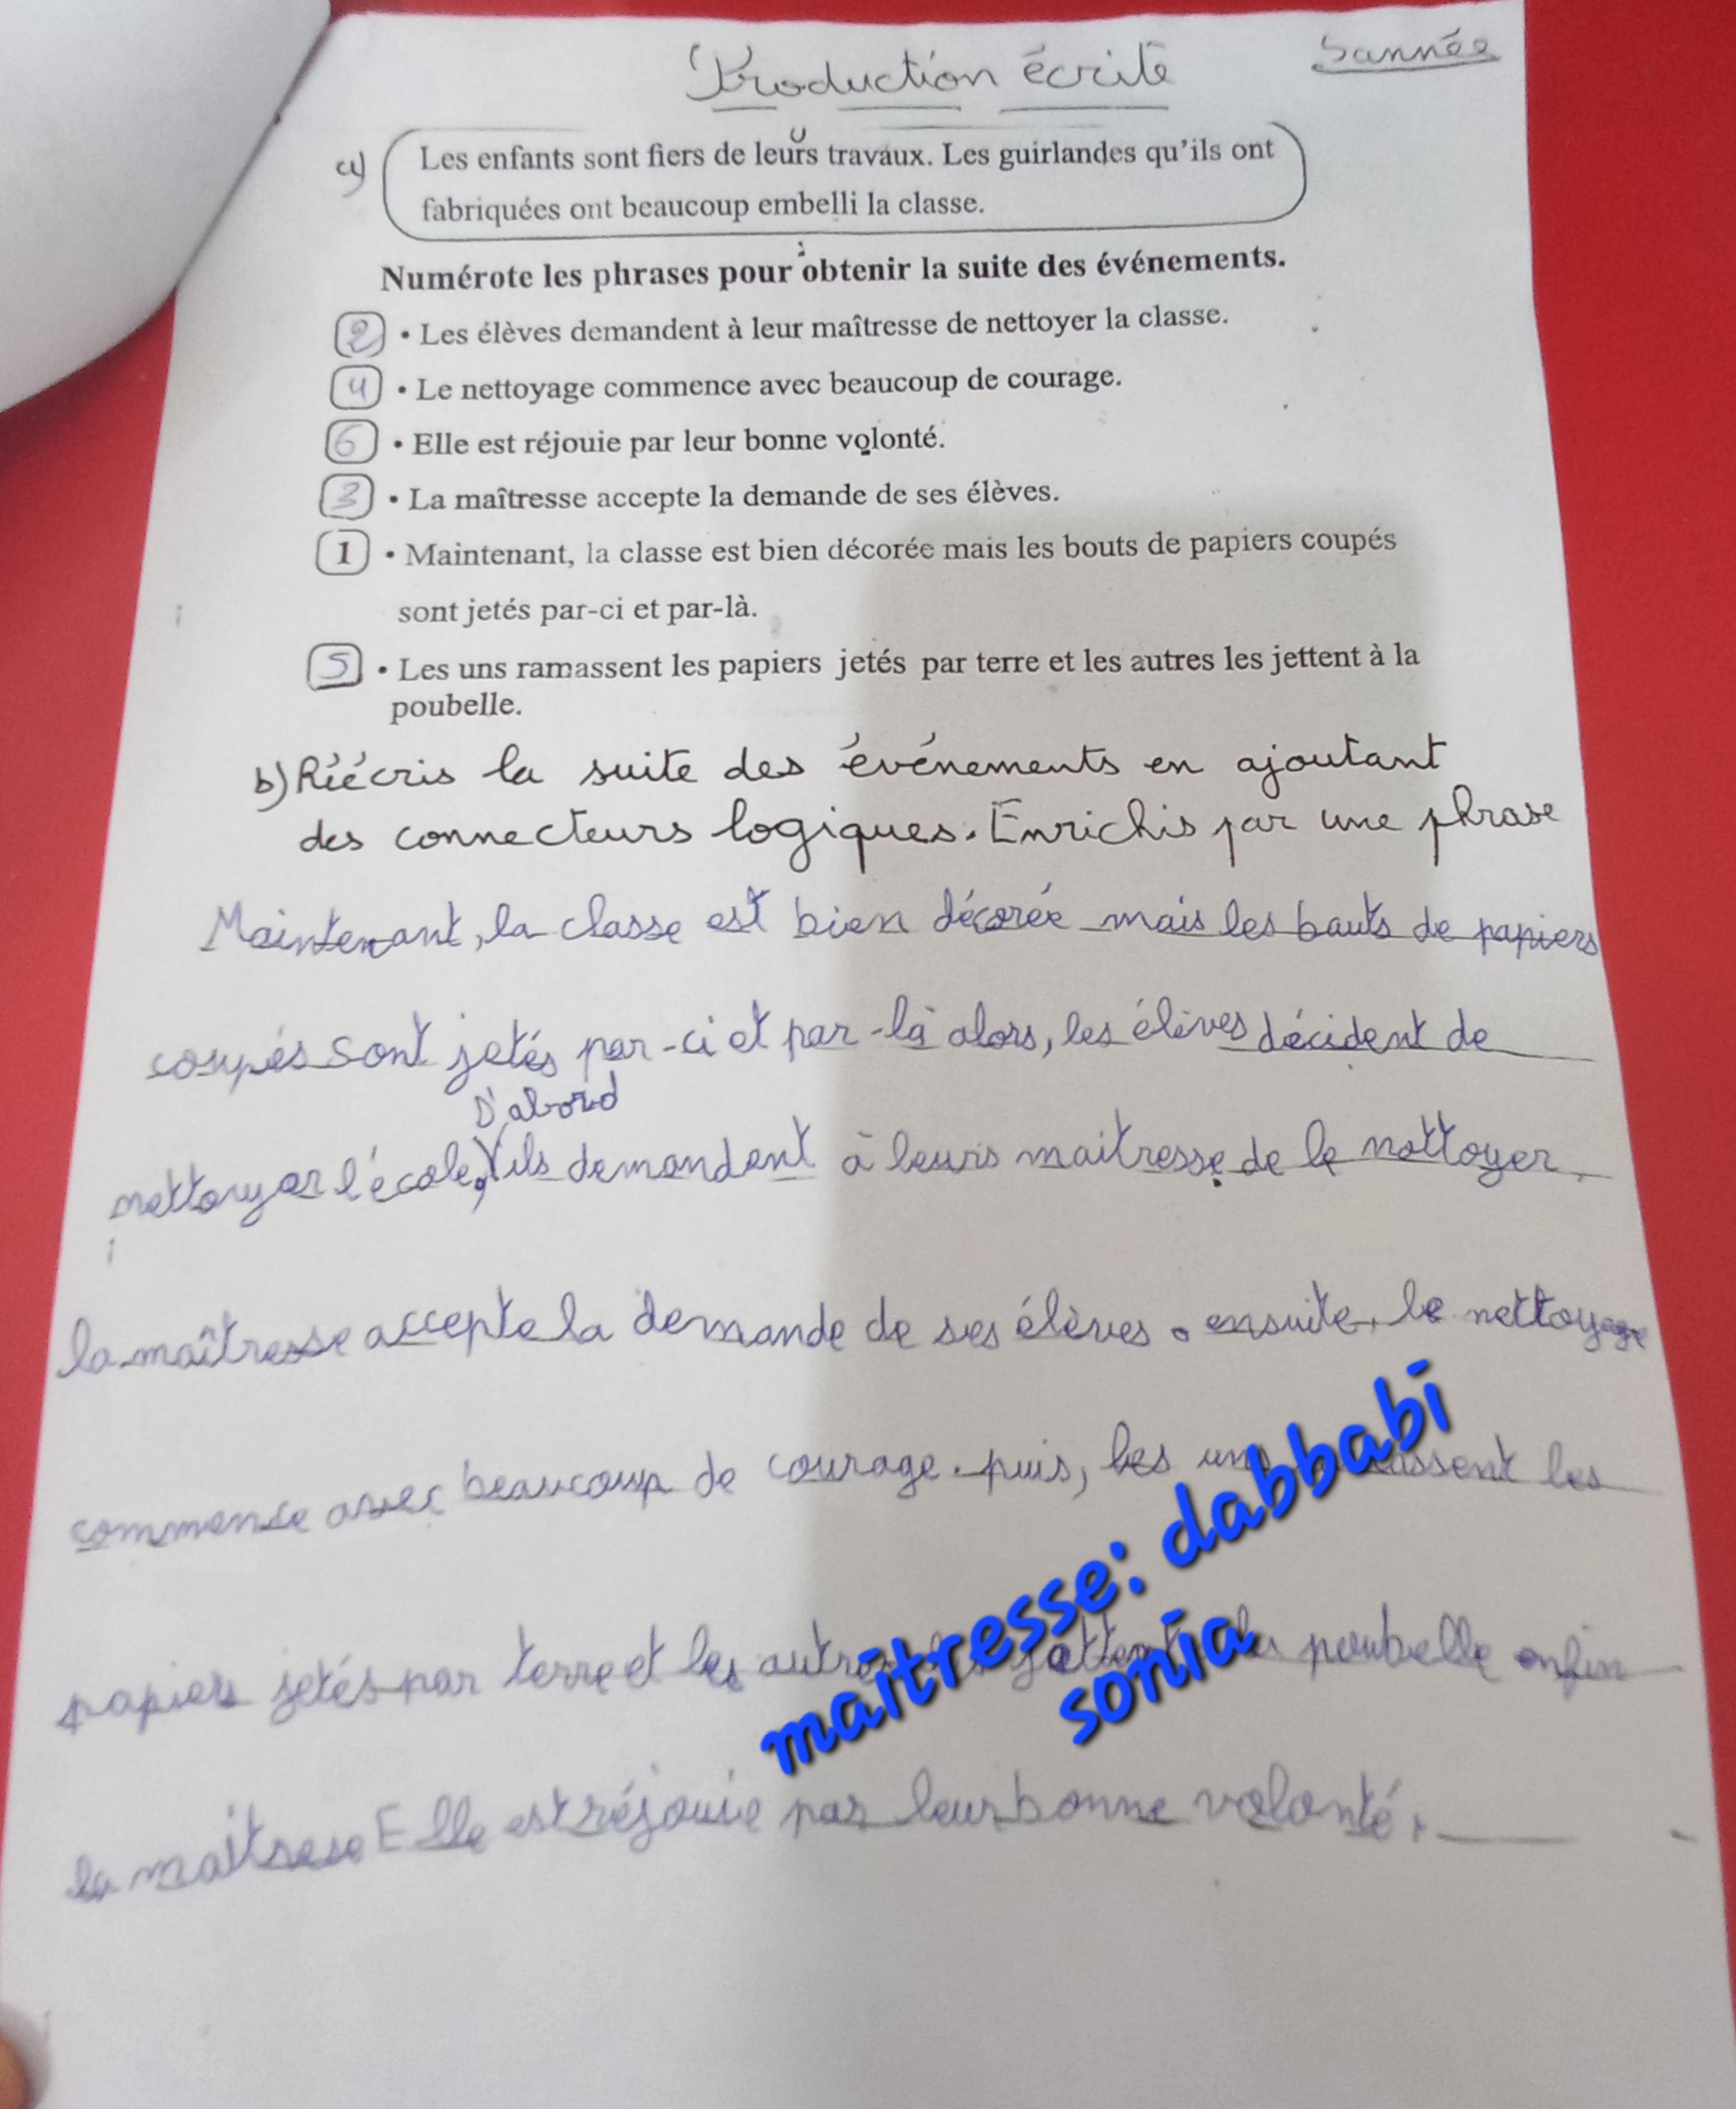 Production écrite
5année
a)
Les enfants sont fiers de leurs travaux. Les guirlandes qu'ils ont
fabriquées ont beaucoup embelli la classe.
Numérote les phrases pour obtenir la suite des événements.
2 • Les élèves demandent à leur maîtresse de nettoyer la classe.
4 • Le nettoyage commence avec beaucoup de courage.
6 • Elle est réjouie par leur bonne volonté.
3 • La maîtresse accepte la demande de ses élèves.
1 • Maintenant, la classe est bien décorée mais les bouts de papiers coupés
sont jetés par-ci et par-là.
5 • Les uns ramassent les papiers jetés par terre et les autres les jettent à la
poubelle.
b) Réécris la suite des événements en ajoutant
des connecteurs logiques. Enrichis par une phrase
Maintenant, la classe est bien décorée mais les bauts de papiers
coupés sont jetés par-ci et par-là alors, les élèves décident de
D'abord
nettoyer l'école, ils demandent à leurs maitresse de le nettoyer.
la maîtresse accepte la demande de ses élèves. ensuite, le nettoyage
commence avec beaucoup de courage. puis, les les
papiers jetés par terre et les poubelle enfin
la maîtrese Elle est réjouie par leur bonne volonté.
maîtresse: dabbabi
sonia